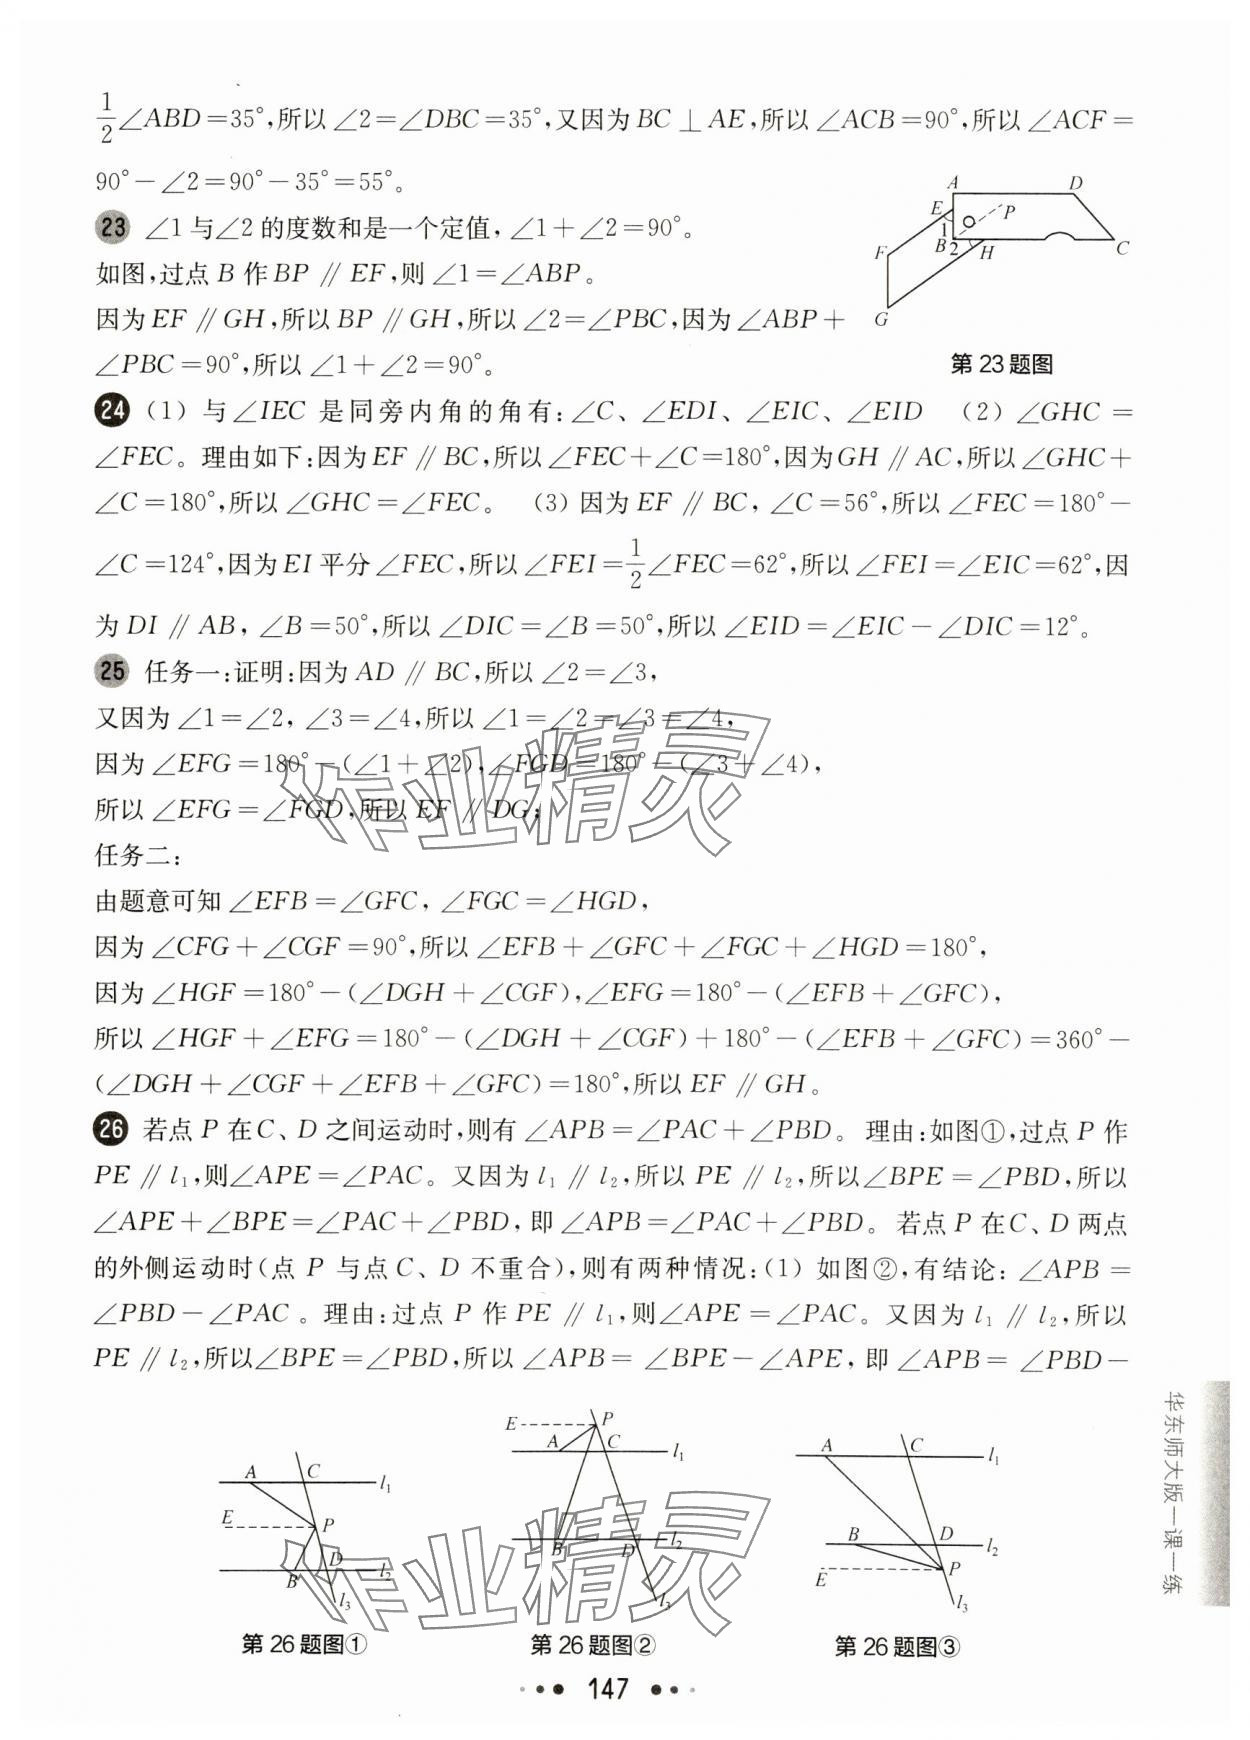 1/2∠ABD=35°,所以∠2=∠DBC=35°,又因为BC⊥AE,所以∠ACB=90°,所以∠ACF=
90°-∠2=90°-35°=55°。
23 ∠1与∠2的度数和是一个定值,∠1+∠2=90°。
如图,过点B作BP∥EF,则∠1=∠ABP。
因为EF∥GH,所以BP∥GH,所以∠2=∠PBC,因为∠ABP+
∠PBC=90°,所以∠1+∠2=90°。
A D
E P
1
F B 2 H C
G
第23题图
24 (1) 与∠IEC是同旁内角的角有:∠C、∠EDI、∠EIC、∠EID (2) ∠GHC=
∠FEC。理由如下:因为EF∥BC,所以∠FEC+∠C=180°,因为GH∥AC,所以∠GHC+
∠C=180°,所以∠GHC=∠FEC。 (3) 因为EF∥BC,∠C=56°,所以∠FEC=180°-
∠C=124°,因为EI平分∠FEC,所以∠FEI=1/2∠FEC=62°,所以∠FEI=∠EIC=62°,因
为DI∥AB,∠B=50°,所以∠DIC=∠B=50°,所以∠EID=∠EIC-∠DIC=12°。
25 任务一:证明:因为AD∥BC,所以∠2=∠3,
又因为∠1=∠2,∠3=∠4,所以∠1=∠2=∠3=∠4,
因为∠EFG=180°-(∠1+∠2),∠FGD=180°-(∠3+∠4),
所以∠EFG=∠FGD,所以EF∥DG;
作业精灵
任务二:
由题意可知∠EFB=∠GFC,∠FGC=∠HGD,
因为∠CFG+∠CGF=90°,所以∠EFB+∠GFC+∠FGC+∠HGD=180°,
因为∠HGF=180°-(∠DGH+∠CGF),∠EFG=180°-(∠EFB+∠GFC),
所以∠HGF+∠EFG=180°-(∠DGH+∠CGF)+180°-(∠EFB+∠GFC)=360°-
(∠DGH+∠CGF+∠EFB+∠GFC)=180°,所以EF∥GH。
26 若点P在C、D之间运动时,则有∠APB=∠PAC+∠PBD。理由:如图①,过点P作
PE∥l₁,则∠APE=∠PAC。又因为l₁∥l₂,所以PE∥l₂,所以∠BPE=∠PBD,所以
∠APE+∠BPE=∠PAC+∠PBD,即∠APB=∠PAC+∠PBD。若点P在C、D两点
的外侧运动时(点P与点C、D不重合),则有两种情况:(1) 如图②,有结论:∠APB=
∠PBD-∠PAC。理由:过点P作PE∥l₁,则∠APE=∠PAC。又因为l₁∥l₂,所以
PE∥l₂,所以∠BPE=∠PBD,所以∠APB=∠BPE-∠APE,即∠APB=∠PBD-
A C l₁
E P
B D l₂
l₃
第26题图①
E P
A C l₁
B D l₂
l₃
第26题图②
A C l₁
B D l₂
E P
l₃
第26题图③
作业精灵
华东师大版一课一练
147